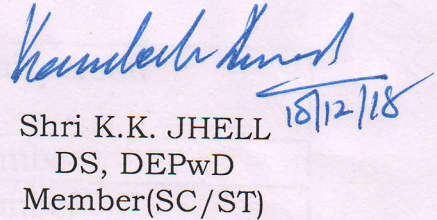 18/12/18
Shri K.K. JHELL
DS, DEPwD
Member(SC/ST)